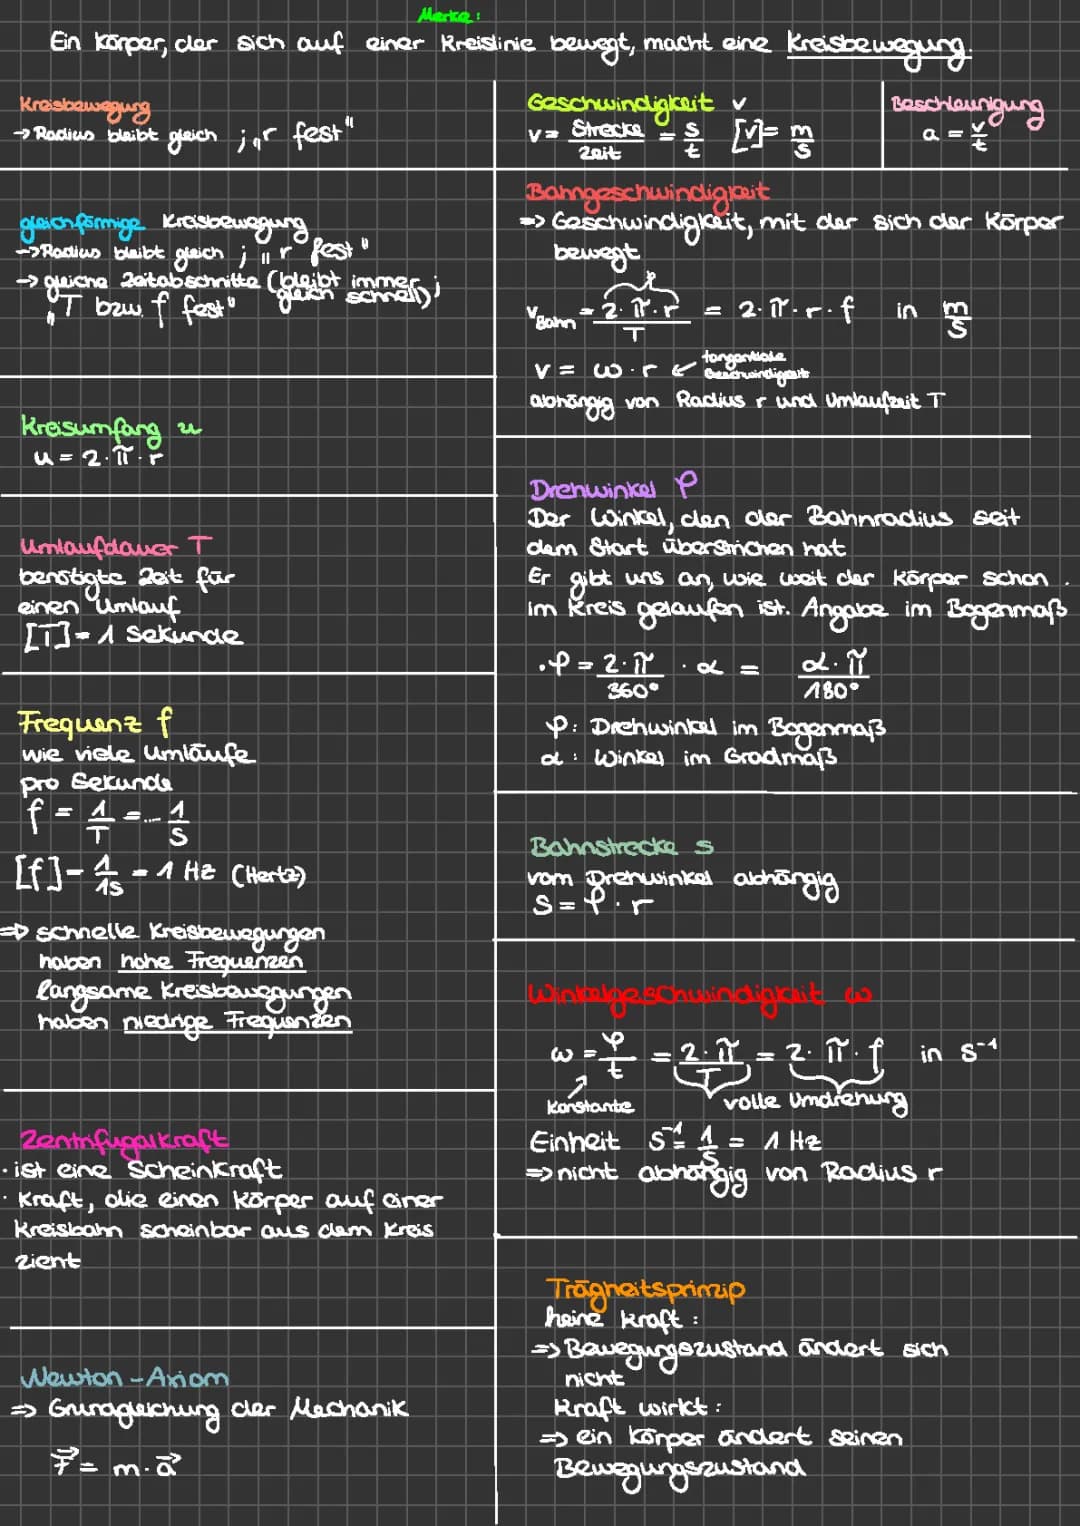 Merke:
Ein Körper, der sich auf einer Kreislinie bewegt, macht eine Kreisbewegung.
Kreisbewegung
→ Radius bleibt gleich ; „r fest"
gleichförmige Kreisbewegung
→ Radius bleibt gleich ; „r fest"
→ gleiche Zeitabschnitte (bleibt immer gleich schnell);
„T bzw. f fest"
Kreisumfang u
u = 2·π·r
Umlaufdauer T
benötigte Zeit für
einen Umlauf
[T] = 1 Sekunde
Frequenz f
wie viele Umläufe
pro Sekunde
f = 1/T = ... 1/s
[f] = 1/1s = 1 Hz (Hertz)
⇒ schnelle Kreisbewegungen
haben hohe Frequenzen
langsame Kreisbewegungen
haben niedrige Frequenzen
Zentrifugalkraft
· ist eine Scheinkraft
· Kraft, die einen Körper auf einer
Kreisbahn scheinbar aus dem Kreis
zieht
Newton-Axiom
⇒ Grundgleichung der Mechanik
F⃗ = m·a⃗
Geschwindigkeit v
v = Strecke/Zeit = s/t [v] = m/s
Beschleunigung
a = v/t
Bahngeschwindigkeit
⇒ Geschwindigkeit, mit der sich der Körper
bewegt
φ
v_Bahn = 2·π·r/T = 2·π·r·f in m/s
v = ω·r ← tangentiale Geschwindigkeit
abhängig von Radius r und Umlaufzeit T
Drehwinkel φ
Der Winkel, den der Bahnradius seit
dem Start überstrichen hat
Er gibt uns an, wie weit der Körper schon
im Kreis gelaufen ist. Angabe im Bogenmaß
· φ = 2·π/360° · α = α·π/180°
φ: Drehwinkel im Bogenmaß
α: Winkel im Gradmaß
Bahnstrecke s
vom Drehwinkel abhängig
s = φ·r
Winkelgeschwindigkeit ω
ω = φ/t = 2·π/T = 2·π·f in s⁻¹
Konstante
volle Umdrehung
Einheit s⁻¹ = 1/s = 1 Hz
⇒ nicht abhängig von Radius r
Trägheitsprinzip
keine Kraft:
⇒ Bewegungszustand ändert sich
nicht
Kraft wirkt:
⇒ ein Körper ändert seinen
Bewegungszustand